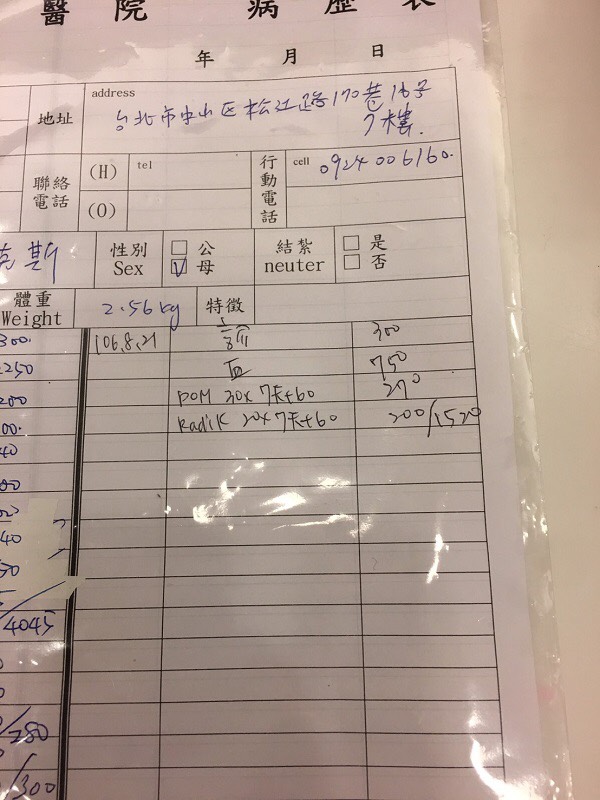 醫院 病歷表
年 月 日
地址 address 台北市中山区松江路170巷16号
7樓.
聯絡電話 (H) tel
(O)
行動電話 cell 0924006160.
克斯 性別 Sex □公 ☑母 結紮 neuter □是 □否
體重 Weight 2.56kg 特徵
300. 106.8.21 診 300
250 血 750
200 POM 30x7天+60 270
00. Radik 20x7天+60 200/1520
40
00
00
40
50
4045
/280
/300